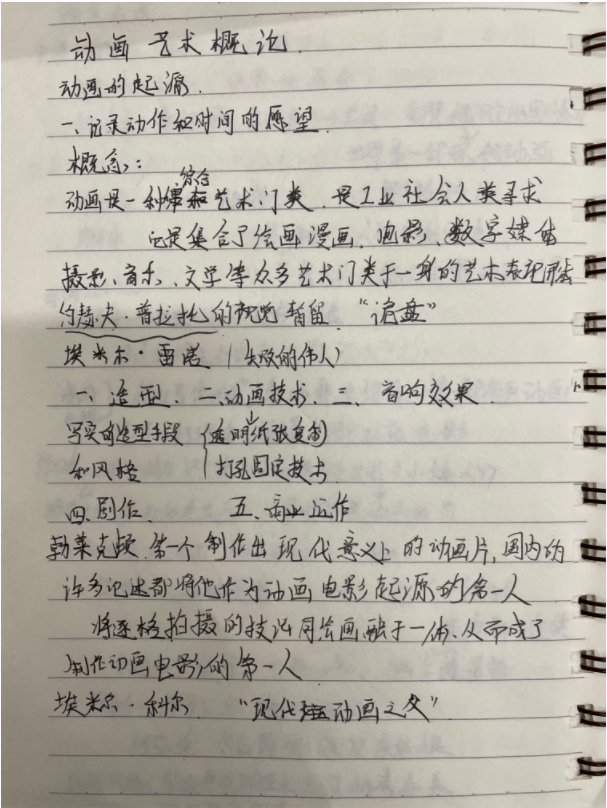 动画艺术概论.
动画的起源.
一、记录动作和时间的愿望.
概念:
综合
动画是一种艺术门类,是工业社会人类寻求
它是集合了绘画漫画、电影、数字媒体
摄影、音乐、文学等众多艺术门类于一身的艺术表现形式
约瑟夫·普拉托的视觉暂留."诡盘"
埃米尔·雷诺(失败的伟人)
一、造型.二、动画技术.三、音响效果
写实的造型手段 透明纸张复制
和风格 打孔固定技术
四、剧作. 五、商业运作
勃莱克顿.第一个制作出现代意义上的动画片,国内的
许多论述都将他作为动画电影起源的第一人
将逐格拍摄的技法同绘画融于一体、从而成了
制作动画电影的第一人
埃米尔·科尔 "现代动画之父"